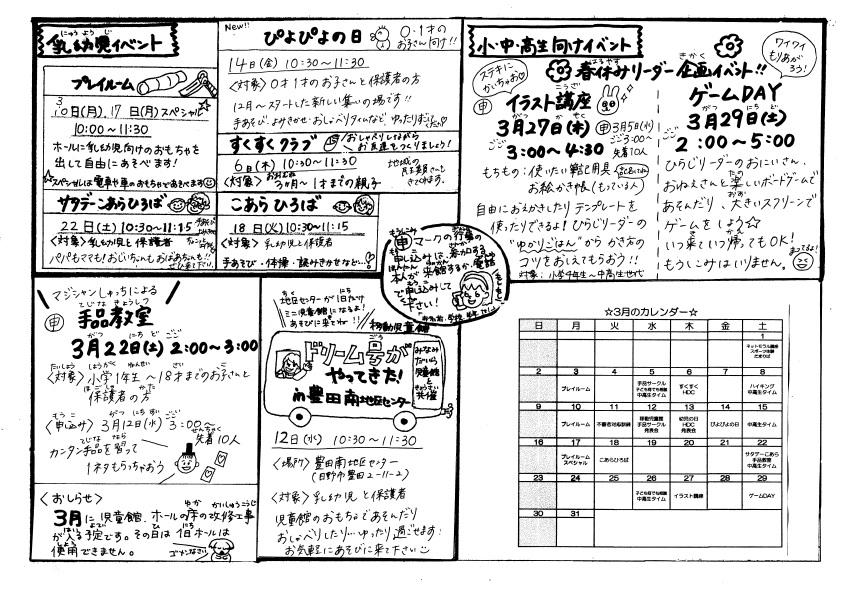 乳幼児イベント
にゅうようじ
プレイルーム
3/10日(月)、17日(月)スペシャル☆
10:00～11:30
ホールに乳幼児向けのおもちゃを
出して自由にあそべます!
☆スペシャルは電車や車のおもちゃであそべます
サタデーこあらひろば
22日(土)10:30～11:15
〈対象〉乳幼児と保護者
パパもママもおじいちゃんもおばあちゃんも!!
ぜひ来て下さい
New!!
ぴよぴよの日
0・1才の
お子さん向け!!
14日(金) 10:30～11:30
〈対象〉0才1才のお子さんと保護者の方
12月～スタートした新しい集いの場です!!
手あそび、よみきかせ、おしゃべりタイムなど、ゆったりすごせます♡
すくすくクラブ
申
おしゃべりしながら
お友達をつくりましょう!
6日(木) 10:30～11:30
〈対象〉3ヵ月～1才までの親子
地域の
民生委員さんも
きてくれます。
こあらひろば
18日(火)10:30～11:15
〈対象〉乳幼児と保護者
手あそび・体操・読みきかせなど…♡
小・中・高生向けイベント
ステキに
かいちゃお♡
ワイワイ
もりあがろう!
はるやす
きかく
春休みリーダー企画イベント!!
申
こうざ
イラスト講座
がつ にち
3月27日(木)
申3月5日(水)
ごご3:00～
先着10人
ごご
3:00～4:30
もちもの:使いたい筆記用具
お絵かき帳(もっている人)
自由におえかきしたりテンプレートを
使ったりできるよ!ひらじリーダーの
"ゆかりごはん"からかき方の
コツをおしえてもらおう!!
対象:小学4年生～中高生世代
ゲームDAY
がつ にち ど
3月29日(土)
ごご
2:00～5:00
ひらじリーダーのおにいさん、
おねえさんと楽しいボードゲームで
あそんだり、大きいスクリーンで
ゲームをしよう☆
いつ来ていつ帰ってもOK!
もうしこみはいりません。
まってるよ!
申マークの行事の
申し込みは、参加する
本人が来館するか電話
で申し込みして
下さい!
マジシャンしゃっちによる
てじな きょうしつ
申
手品教室
がつ にち ど ごご
3月22日(土)2:00～3:00
〈対象〉小学1年生～18才までのお子さんと
保護者の方
〈申込み〉3月12日(水)3:00～
先着10人
カンタン手品を習って
1ネタもらっちゃおう
〈おしらせ〉
3月に児童館、ホールの床の改修工事
が入る予定です。その日は1日ホールは
使用できません。
ゴメンなさい
地区センターが1日だけ
ミニ児童館になるよ!
あそびに来てね!!
移動児童館
ドリーム号が
やってきた!
in豊田南地区センター
みなみ
だいら
児童館
と
共催
12日(水) 10:30～11:30
〈場所〉豊田南地区センター
(日野市豊田2-11-2)
〈対象〉乳幼児と保護者
児童館のおもちゃであそんだり
おしゃべりしたり…ゆったり過ごせます!
お気軽にあそびに来て下さい
☆3月のカレンダー☆
日 月 火 水 木 金 土
1
ネットモラル講座
スポーツ体験
たまりば
2 3 4 5 6 7 8
プレイルーム
手品サークル
子ども育ても相談
中高生タイム
すくすく
HDC
ハイキング
中高生タイム
9 10 11 12 13 14 15
プレイルーム
不審者対応訓練
移動児童館
手品サークル
発表会
幼児の日
HDC
発表会
ぴよぴよの日
中高生タイム
16 17 18 19 20 21 22
プレイルーム
スペシャル
こあらひろば
サタデーこあら
手品教室
中高生タイム
23 24 25 26 27 28 29
中高生タイム
イラスト講座
ゲームDAY
30 31